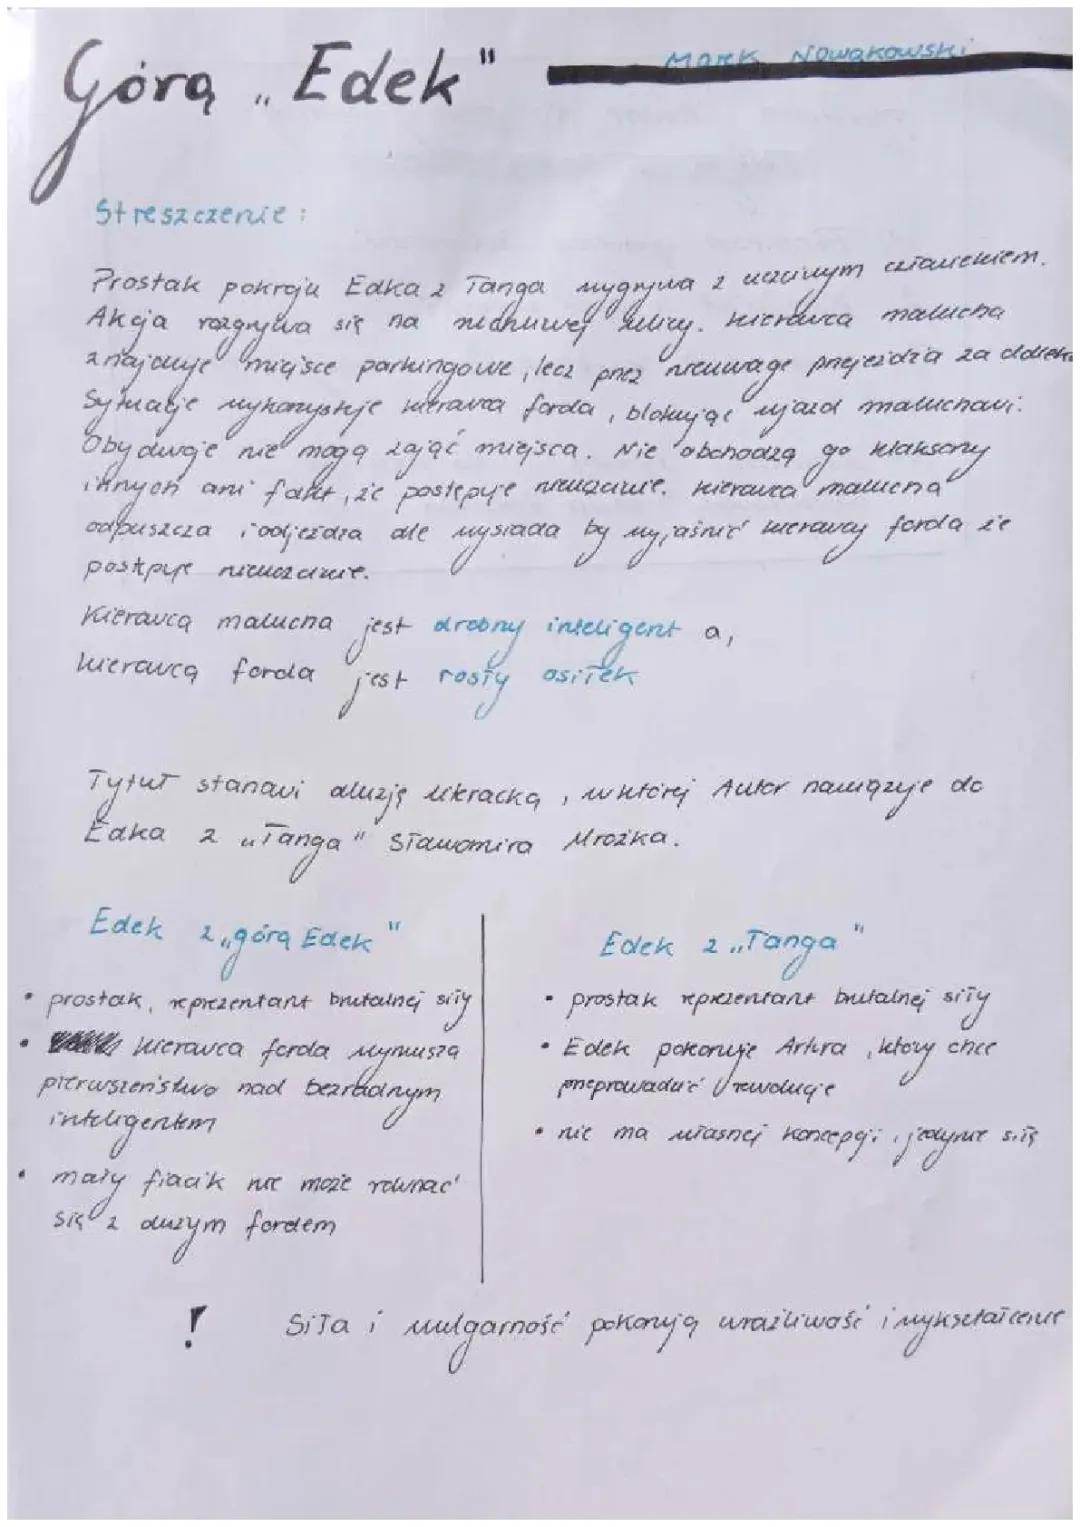 Górą „Edek"
Marek Nowakowski
Streszczenie:
Prostak pokroju Edka z Tanga wygrywa z uczciwym człowiekiem.
Akcja rozgrywa się na ulicy. kierowca malucha
znajduje miejsce parkingowe, lecz przez nieuwagę przejeżdża za daleko
Sytuację wykorzystuje kierowca forda, blokując wjazd maluchowi.
Obydwoje nie mogą zająć miejsca. Nie obchodzą go klaksony
innych ani fakt, że postępuje nieuczciwie. kierowca malucha
odpuszcza i odjeżdża ale wysiada by wyjaśnić kierowcy forda że
postępuje nieuczciwie.
Kierowcą malucha jest drobny inteligent a,
kierowcą forda jest rosły osiłek
Tytuł stanowi aluzję literacką, w której Autor nawiązuje do
Edka z „Tanga" Sławomira Mrożka.
Edek z „górą Edek"
• prostak, reprezentant brutalnej siły
• kierowca forda wymusza
pierwszeństwo nad bezradnym
inteligentem
• mały fiacik nie może równać
się z dużym fordem
Edek z „Tanga"
• prostak reprezentant brutalnej siły
• Edek pokonuje Artura, który chce
przeprowadzić rewolucje
• nie ma własnej koncepcji, jedynie siłę
! Siła i wulgarność pokonują wrażliwość i wykształcenie